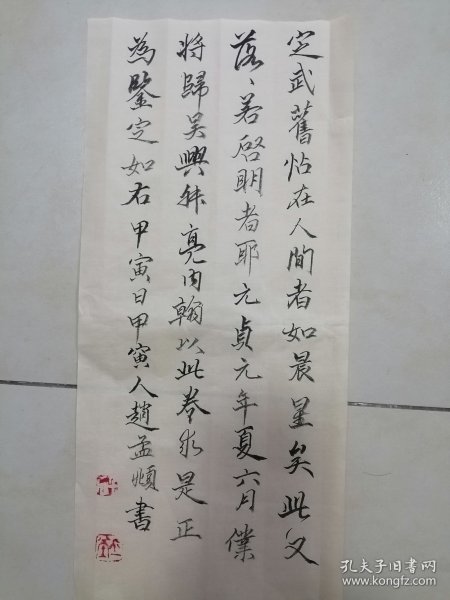 定武舊帖在人間者如晨星矣此又
落、若啓明者耶元貞元年夏六月僕
将歸吴興秌亮内翰以此卷求是正
為鑒定如右甲寅日甲寅人趙孟頫書
孔夫子旧书网
www.kongfz.com